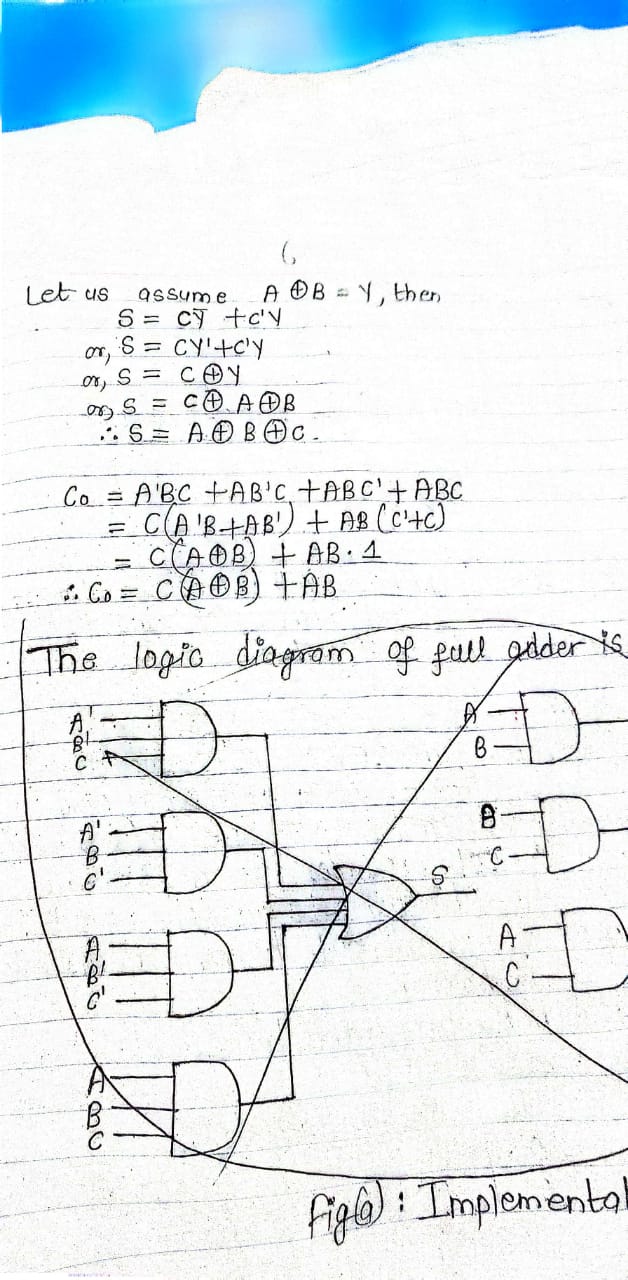 Let us assume A ⊕ B = Y, then
S = CȲ + C'Y
or, S = CY' + C'Y
or, S = C ⊕ Y
or, S = C ⊕ A ⊕ B
∴ S = A ⊕ B ⊕ C.
Co = A'BC + AB'C + ABC' + ABC
= C(A'B + AB') + AB(C' + C)
= C(A ⊕ B) + AB · 1
∴ Co = C(A ⊕ B) + AB
The logic diagram of full adder is
A'
B'
C
A'
B
C'
A
B'
C'
A
B
C
S
A
B
B
C
A
C
fig(a) : Implementat